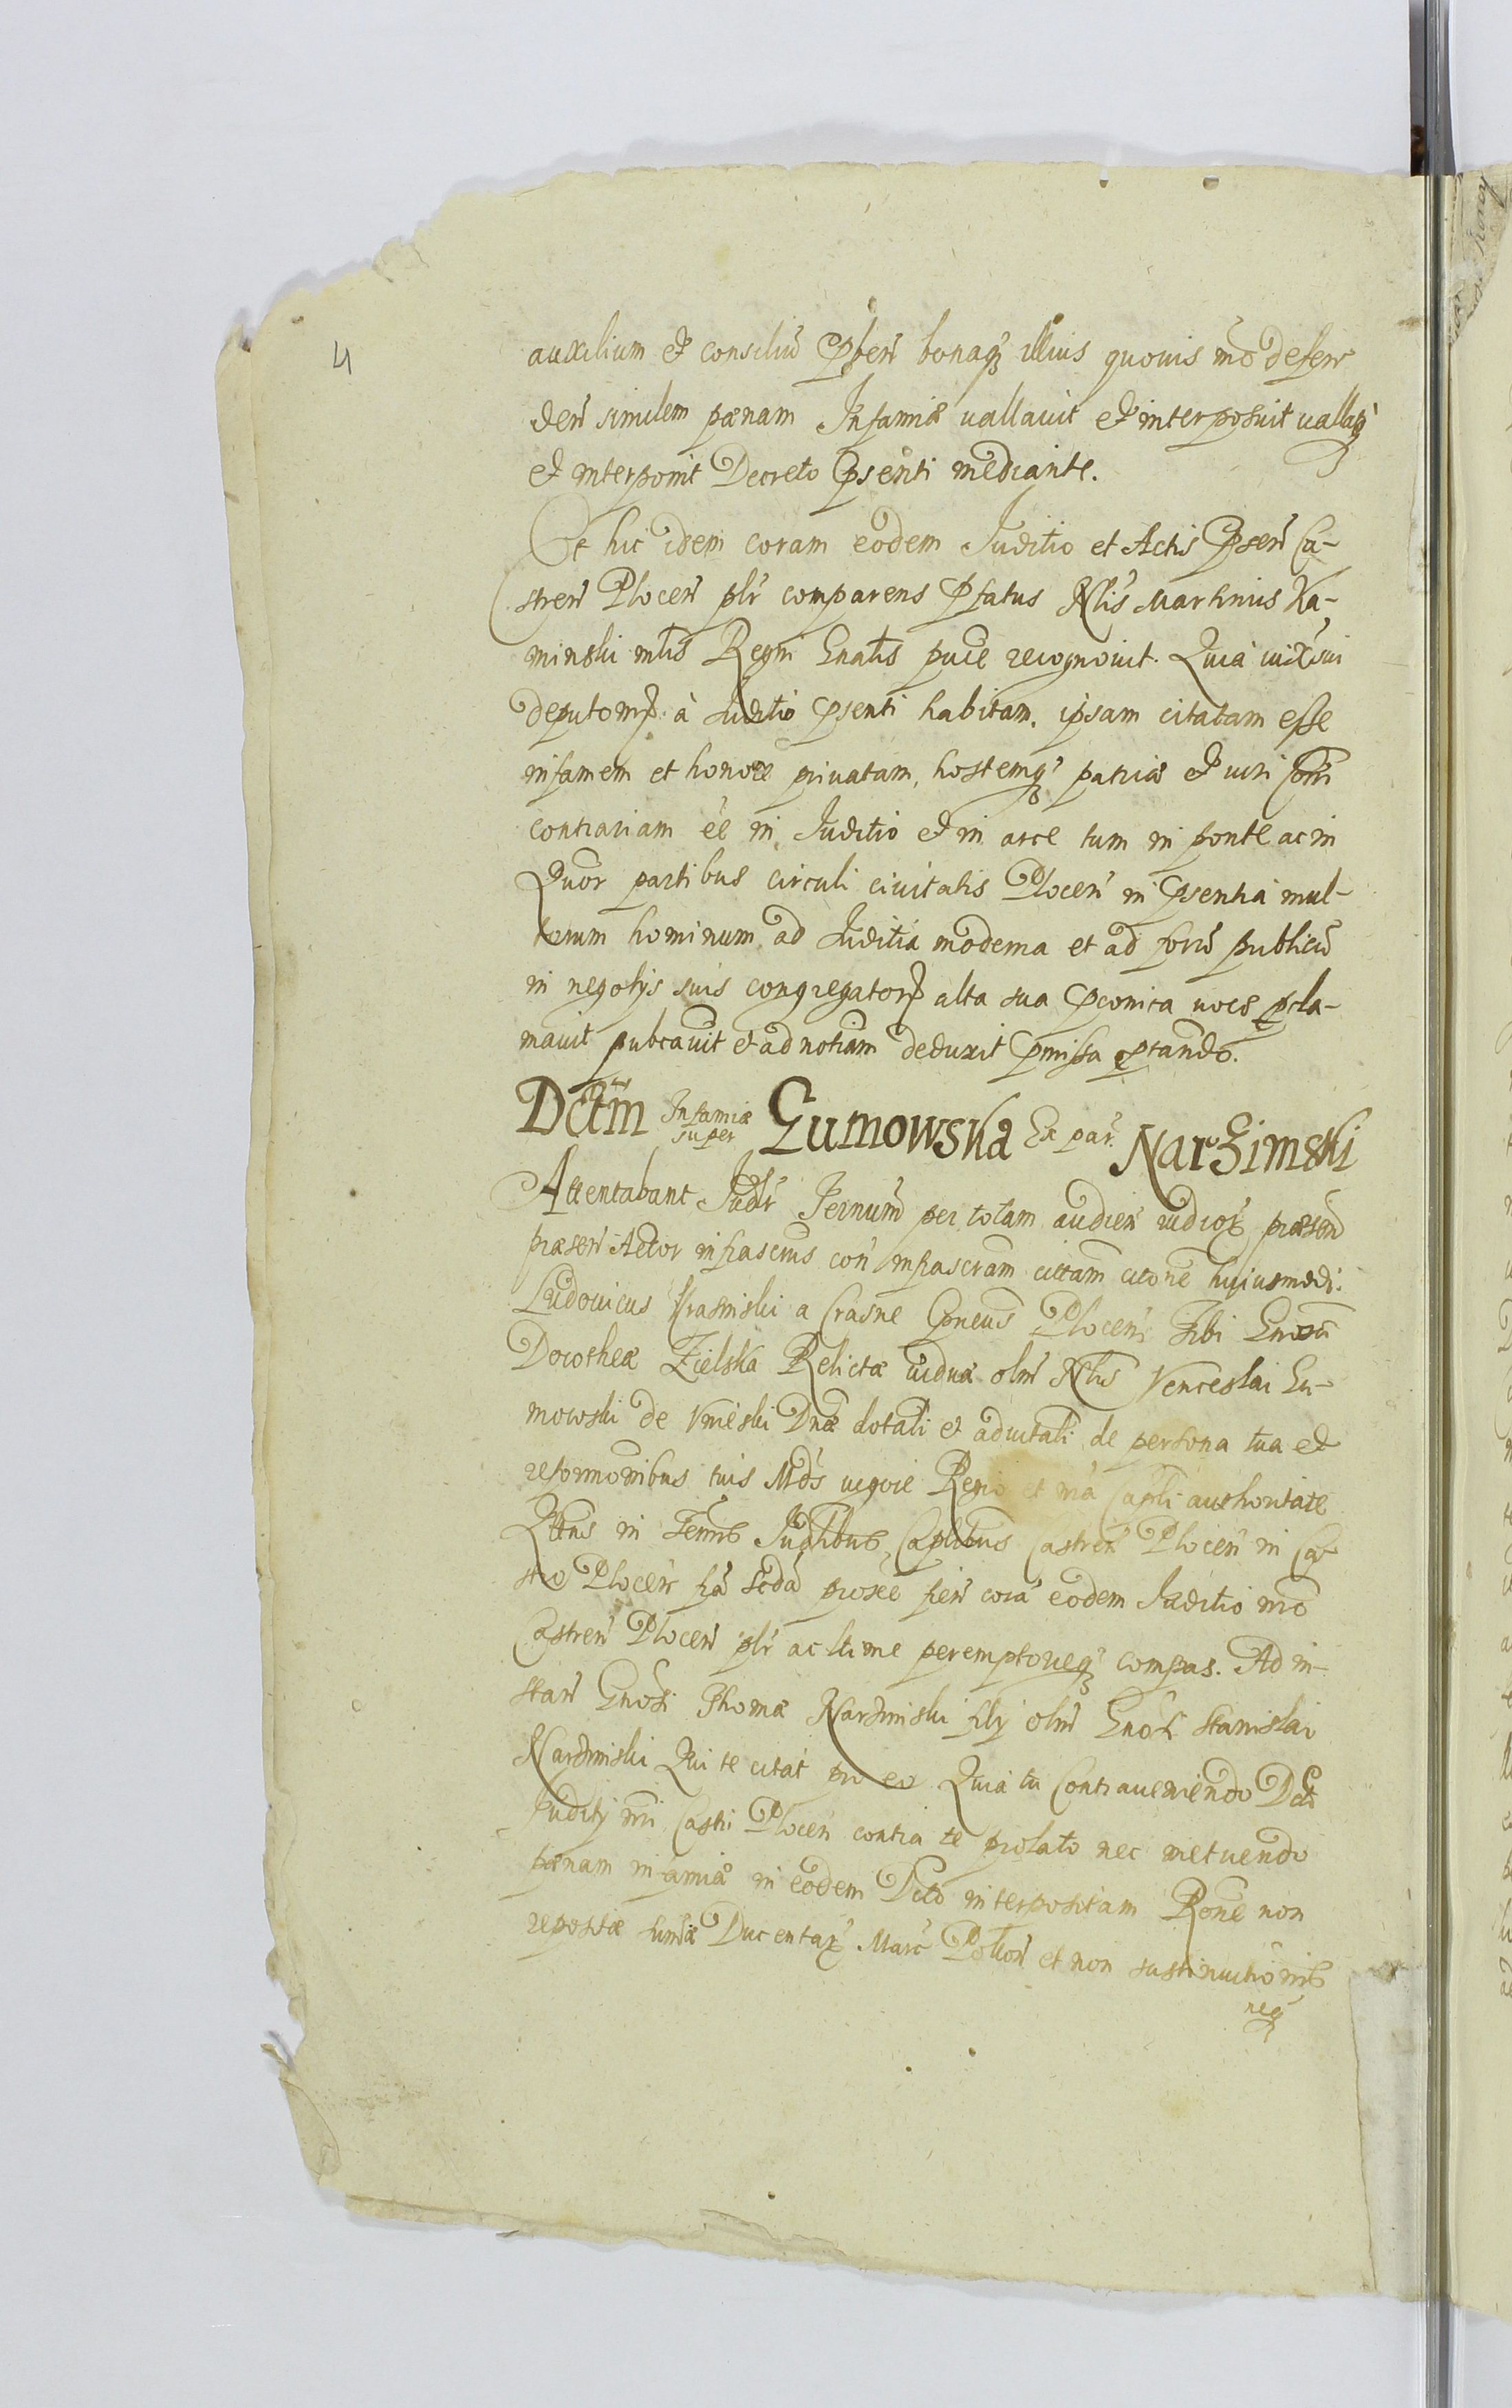 4
auxiliũm et consiliũ Pben̄ bonaq₃ illius quovis mõ defen
den̄ similem pænam Infamiæ vallavit et interposuit vallatq₃
et interponit Decreto Psenti mediante.
Et hic idem coram eodem Juditio et Actis Psen̄ Ca-
stren̄ Plocen̄ plr̄ comparens Pfatus Nlis Martinus Ka-
minski mtis Regni Gnalis puce recognovit. Quia vix sui
deputom̄ à Juditio Psenti habitam, ipsam citatam esse
infamem et honore privatam, hostemq₃ patriæ et vitri com̄i
contrariam ẽe in Juditio et in arce tum in ponte ac in
Quor partibus circuli civitatis Plocen̄ in Psentia mul-
torum hominum ad Juditia moderna et ad forũ publicũ
in negotys suis congregator̄ alta sua Pconica voce pcla-
mavit pubcavit et ad notiam deduxit Pmissa ptando.
Dctm Infamiæ super Gumowska Ex par. Narzimski
Attentabant Judr̄ Ternum per totam audien̄ iudior̄ præsen̄
præsen̄ Actor infrascrius con̄ infrascram cittam citone hujusmodi.
Ludovicus Krasinski a Crasne Cpneus Plocen̄ Tibi Gnosæ
Dorotheæ Zielska Relictæ viduæ olim Nlis Venceslai Gu-
mowski de Vmieski Dnæ dotali et advitali de persona tua et
reformonibus tuis Mds vigore Regia et mã Capli authoritate
Qttus in Termis Judlibus Caplibus Castren̄ Plocen̄ in Ca-
stro Plocen̄ fã scda proxe fien̄ corã eodem Juditio mẽo
Castren̄ Plocen̄ plr̄ ac ltime peremptorieq₃ compas. Ad in-
stan̄ Gnosi Thomæ Narzimski fily olim Gnosi Stanislai
Narzimski Qui te citat pro eo Quia tu Contraveniendo Dcto
Judity mei Castri Plocen̄ contra te prolato nec metuendo
pænam infamiæ in eodem Dcto interpositam Rone non
repositæ sum̄æ Ducentar̄ Marc̄ Pollon̄ et non sustinuitionis
neq₃